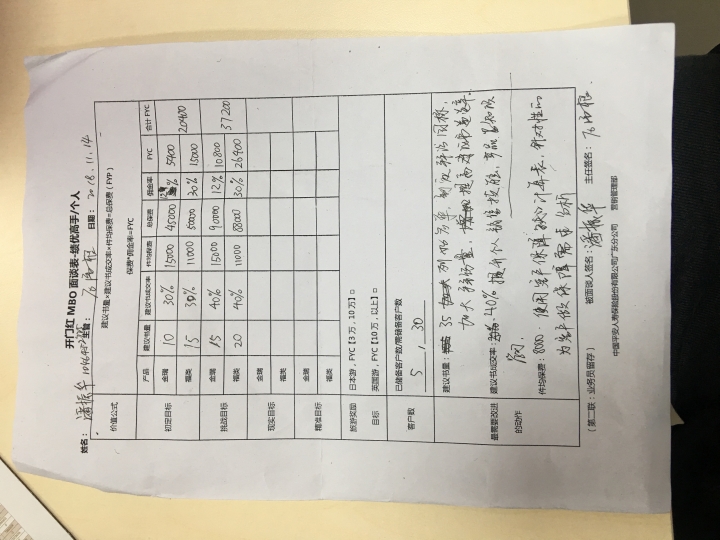 开门红 MBO 面谈表-绩优高手/个人
姓名： 潘振华 主管： 日期： 2018.11.14
建议书量×建议书成交率×件均保费=总保费（FYP）
价值公式 保费*佣金率=FYC
产品 建议书量 建议书成交率 件均保费 总保费 佣金率 FYC 合计 FYC
初定目标 金瑞 10 30% 15000 45000 12% 5400 20400
福英 15 30% 11000 50000 30% 15000
挑战目标 金瑞 15 40% 15000 90000 12% 10800 37200
福英 20 40% 11000 88000 30% 26400
现实目标 金瑞
福英
精准目标 金瑞
福英
旅游奖励 日本游，FYC【3 万，10 万】□
目标 英国游，FYC【10 万，以上】□
客户数 已储备客户数/需储备客户数
5 , 30
最需要改进 建议书量： 35 列名单，
的动作 加大 量， 提高建议书 率.
建议书成交率： 40% 提升个人销售技能，产品
件均保费： 8000. 使用客户保障缺口计算表，针对性的
为客户做保障需求分析
（第二联：业务员留存） 被面谈人签名： 潘振华 主任签名：
中国平安人寿保险股份有限公司广东分公司 营销管理部